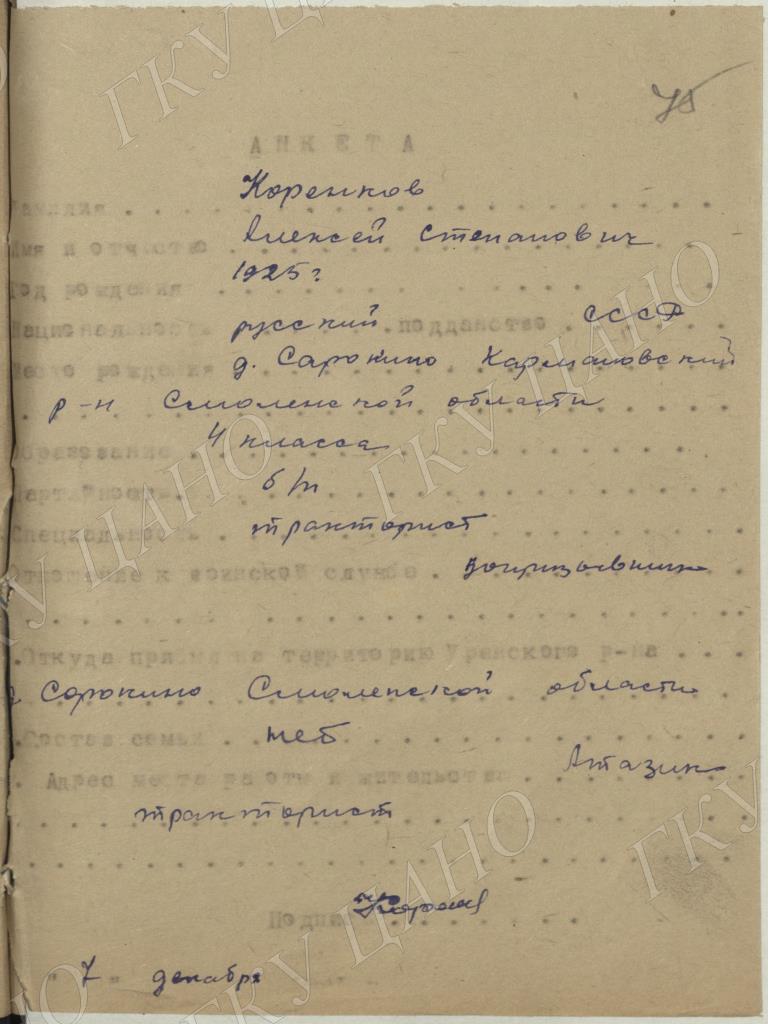 75
АНКЕТА
Фамилия Коренков
Имя и отчество Алексей Степанович
Год рождения 1925 г
Национальность русский подданство СССР
Место рождения д. Сарокино Кармановский
р-н Смоленской области
Образование 4 класса
Партийность б/п
Специальность тракторист
Отношение к воинской службе допризывник
Откуда прибыл на территорию Уренского р-на
д Сорокино Смоленской области
Состав семьи нет
Адрес места работы и жительства
тракторист
Подпись
" 7 " декабря
ГКУ ЦАНО